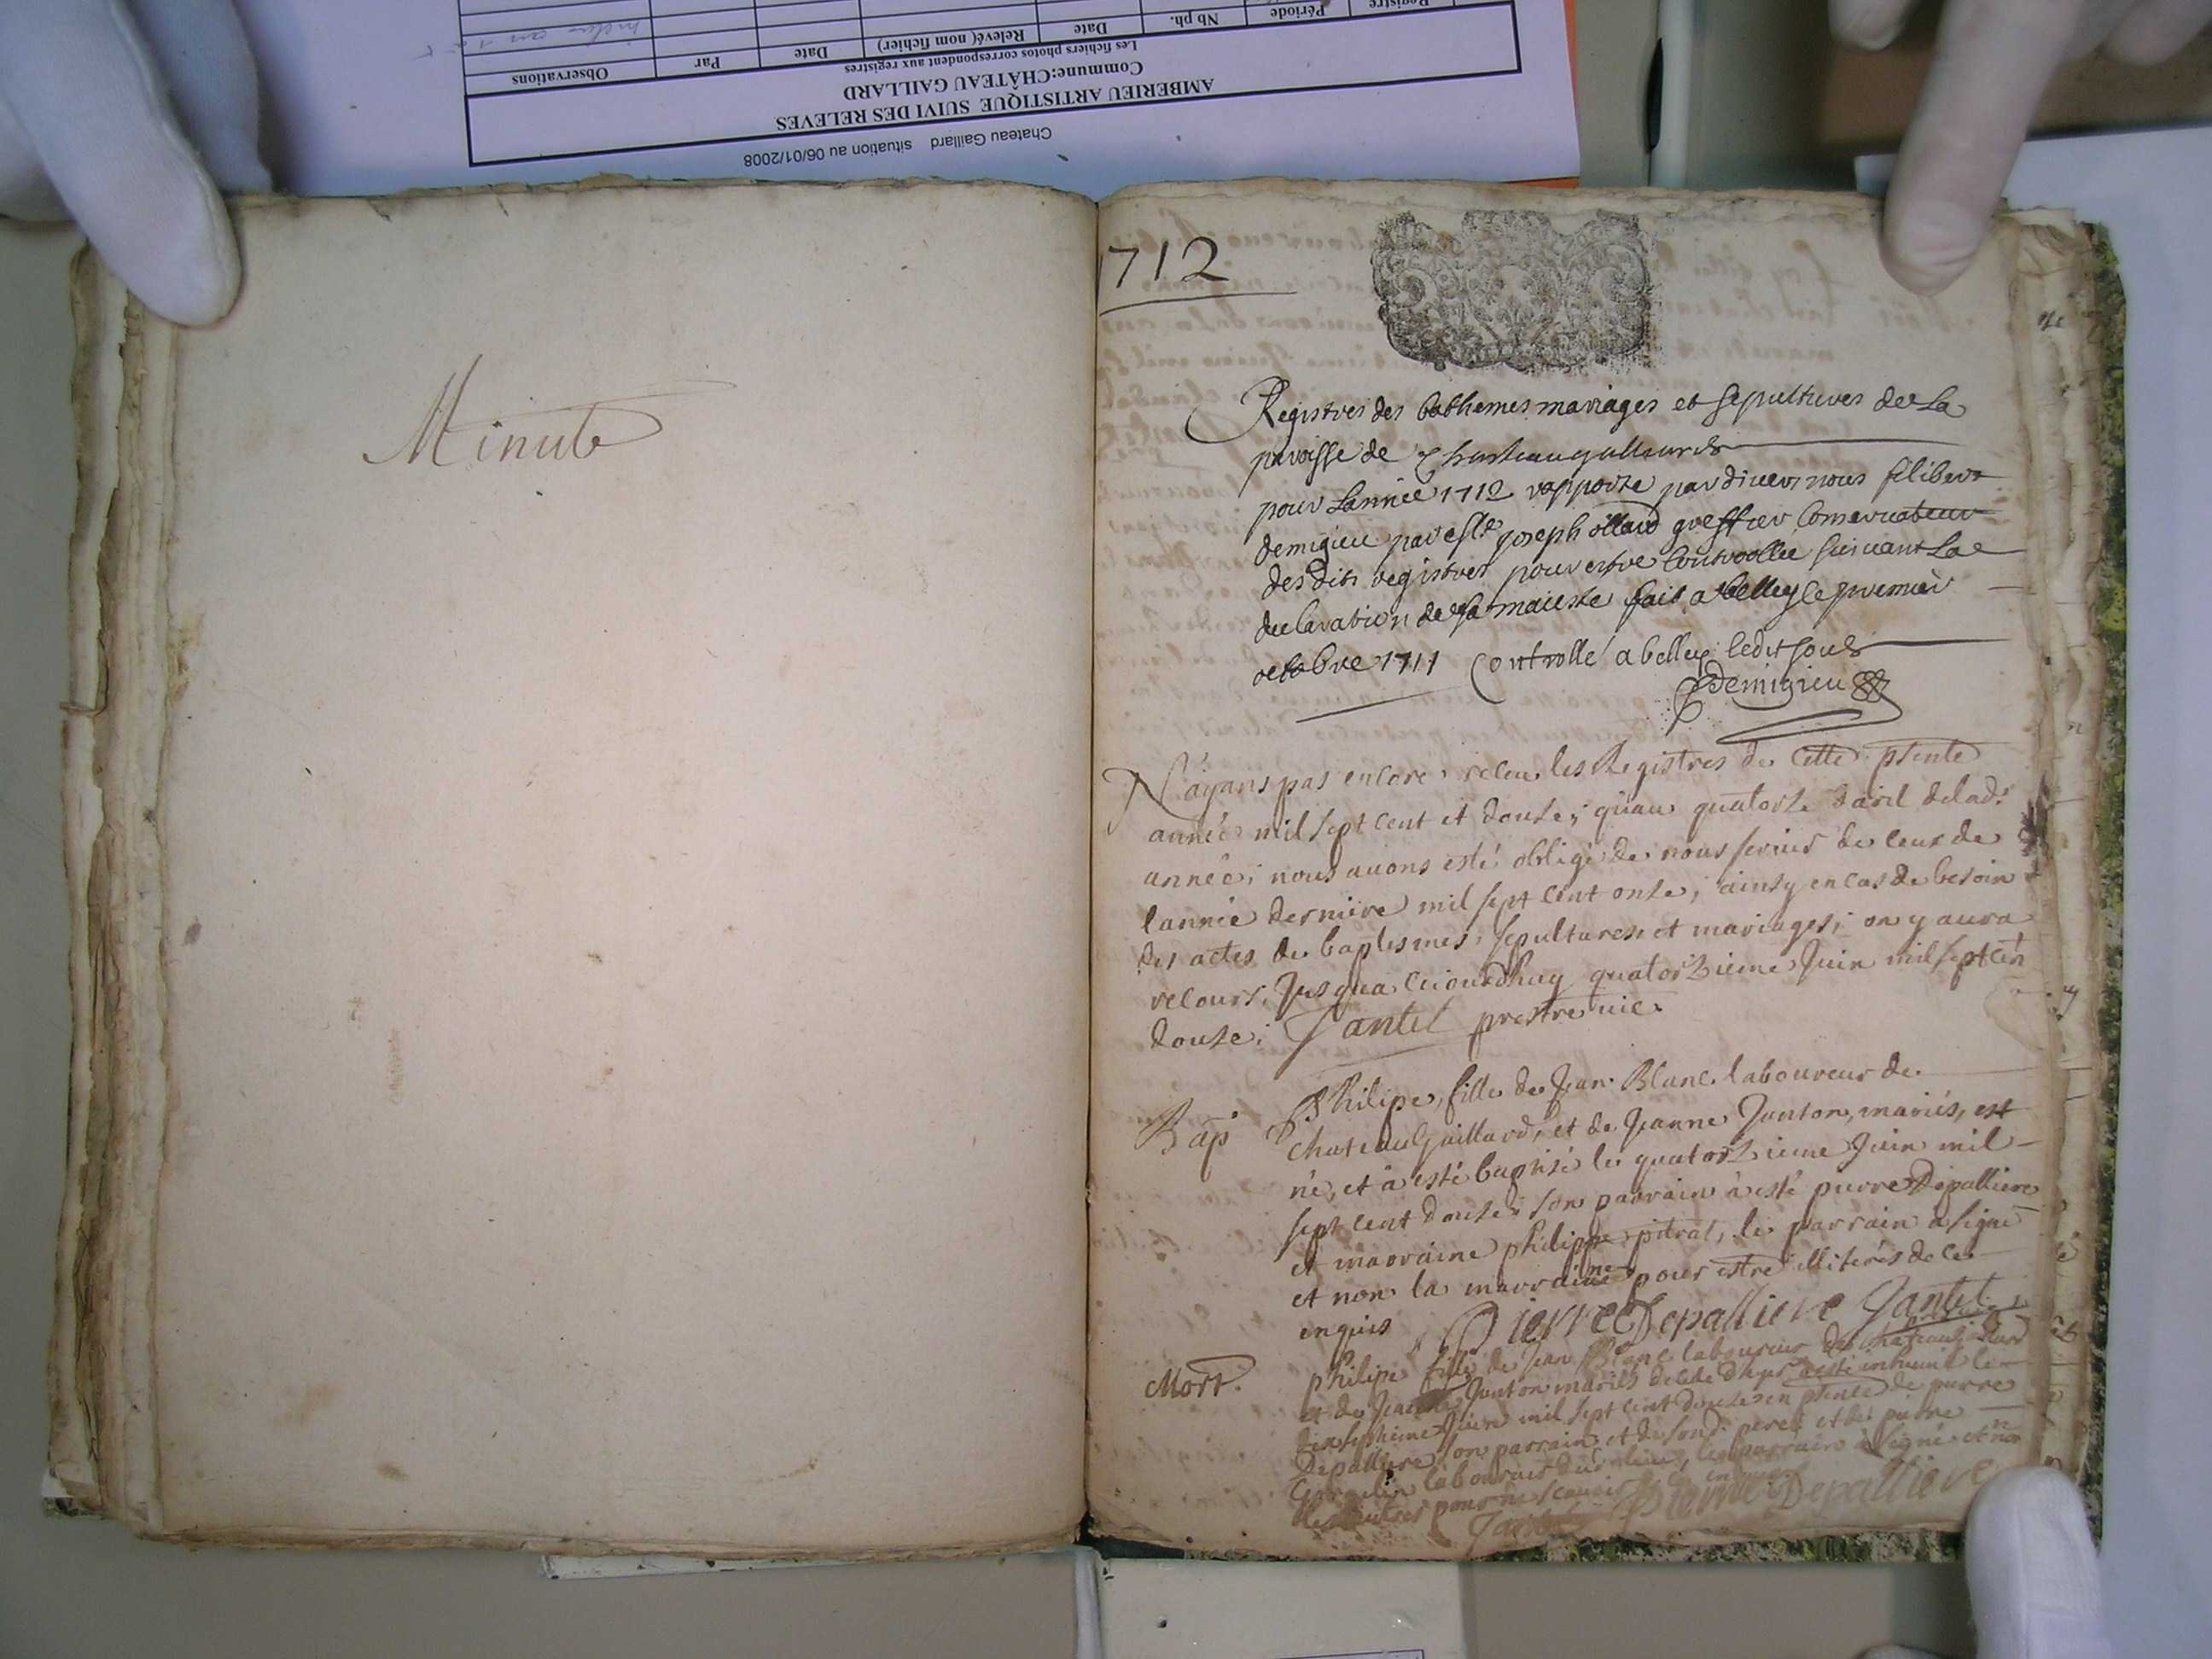 Chateau Gaillard situation au 06/01/2008
AMBERIEU ARTISTIQUE SUIVI DES RELEVES
Commune:CHÂTEAU GAILLARD
Les fichiers photos correspondent aux registres
Registre Période Nb ph. Date Relevé( nom fichier) Date Par Observations
Minute
1712
Registres des bathemes mariages et sepultures de La
paroisse de Chasteaugalliard
pour Lannée 1712 rapporté pardever nous filibert
demigieu par esle joseph ollard greffier Conservateur
desdits registres pour estre Controollée suivant La
declaration de sa maieste fait a belley le premier
octobre 1711 Controllé a belley ledit jour
Demigieu
N'ayans pas encore receu les Registres de Cette pñte
année mil sept cent et douze, qu'au quatorze d'avril de lad.
année, nous avons esté obligé de nous servir de ceux de
l'année derniere mil sept cent onze, ainsy en cas de besoin
des actes de baptesmes, sepultures et mariages, on y aura
recours, Jusqua ceiourdhuy quatorzieme Juin mil sept cen
douze. Jantet prestre vic.
Bap Philipe, fille de Jean Blanc laboureur de
chateauGaillard, et de Jeanne Janton, mariés, est
né, et a esté baptisé le quatorzieme Juin mil
sept cent douze, son parrain a esté pierre Depalliere
et marraine philippe pitrat, le parrain a signé
et non la marraine pour estre illiterés de ce
enquis Pierre Depalliere Jantet
Mort. philipe fille de Jean Blanc laboureur de chateaugaillard
et de Jeanne Janton mariés a esté inhumé le
dixseptieme Juin mil sept cent douze en pñce de pierre
Depalliere son parrain et de sond. pere et de pierre
laboureur dud. lieu, le parrain a signé et non
les autres pour ne scavoir enquis Pierre Depalliere
Jantet